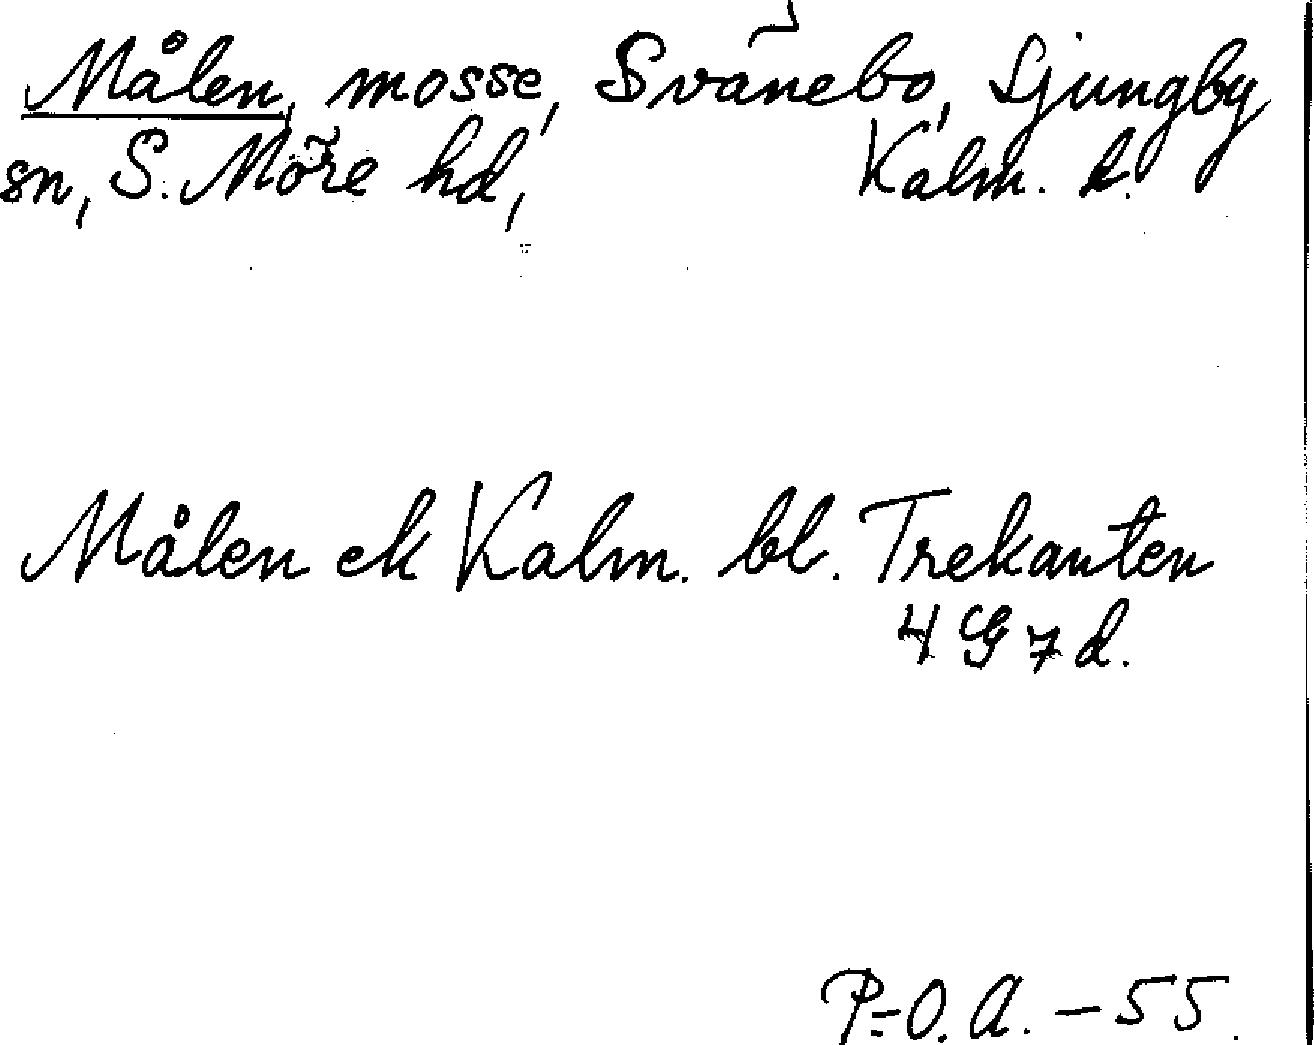 Målen, mosse, Svanebo, Ljungby
sn, S. Möre hd, Kalm. l.
Målen ek Kalm. bl. Trekanten
4 G 7 d.
P-O. A. - 55.